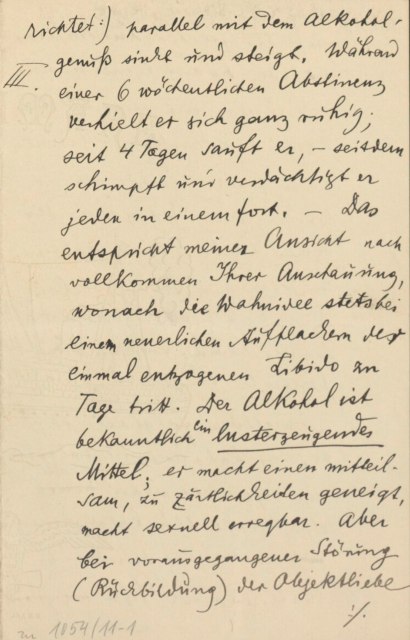 richtet:) parallel mit dem Alkohol-
genuß sinkt und steigt. Während
III.
einer 6 wöchentlichen Abstinenz
verhielt er sich ganz ruhig;
seit 4 Tagen sauft er, – seitdem
schimpft und verdächtigt er
jeden in einem fort. – Das
entspricht meiner Ansicht nach
vollkommen Ihrer Anschauung,
wonach die Wahnidee stets bei
einem neuerlichen Aufflackern der
einmal entzogenen Libido zu
Tage tritt. Der Alkohol ist
bekanntlich ein lusterzeugendes
Mittel; er macht einen mitteil-
sam, zu Zärtlichkeiten geneigt,
macht sexuell erregbar. Aber
bei vorausgegangener Störung
(Rückbildung) der Objektliebe
./.
1054/11-1